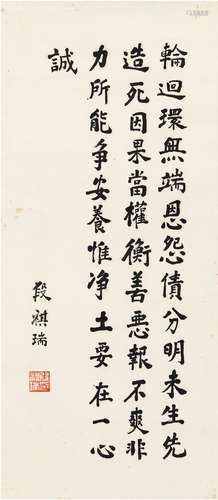 輪迴環無端恩怨債分明未生先
造死因果當權衡善惡報不爽非
力所能争安養惟净土要在一心
誠
段祺瑞